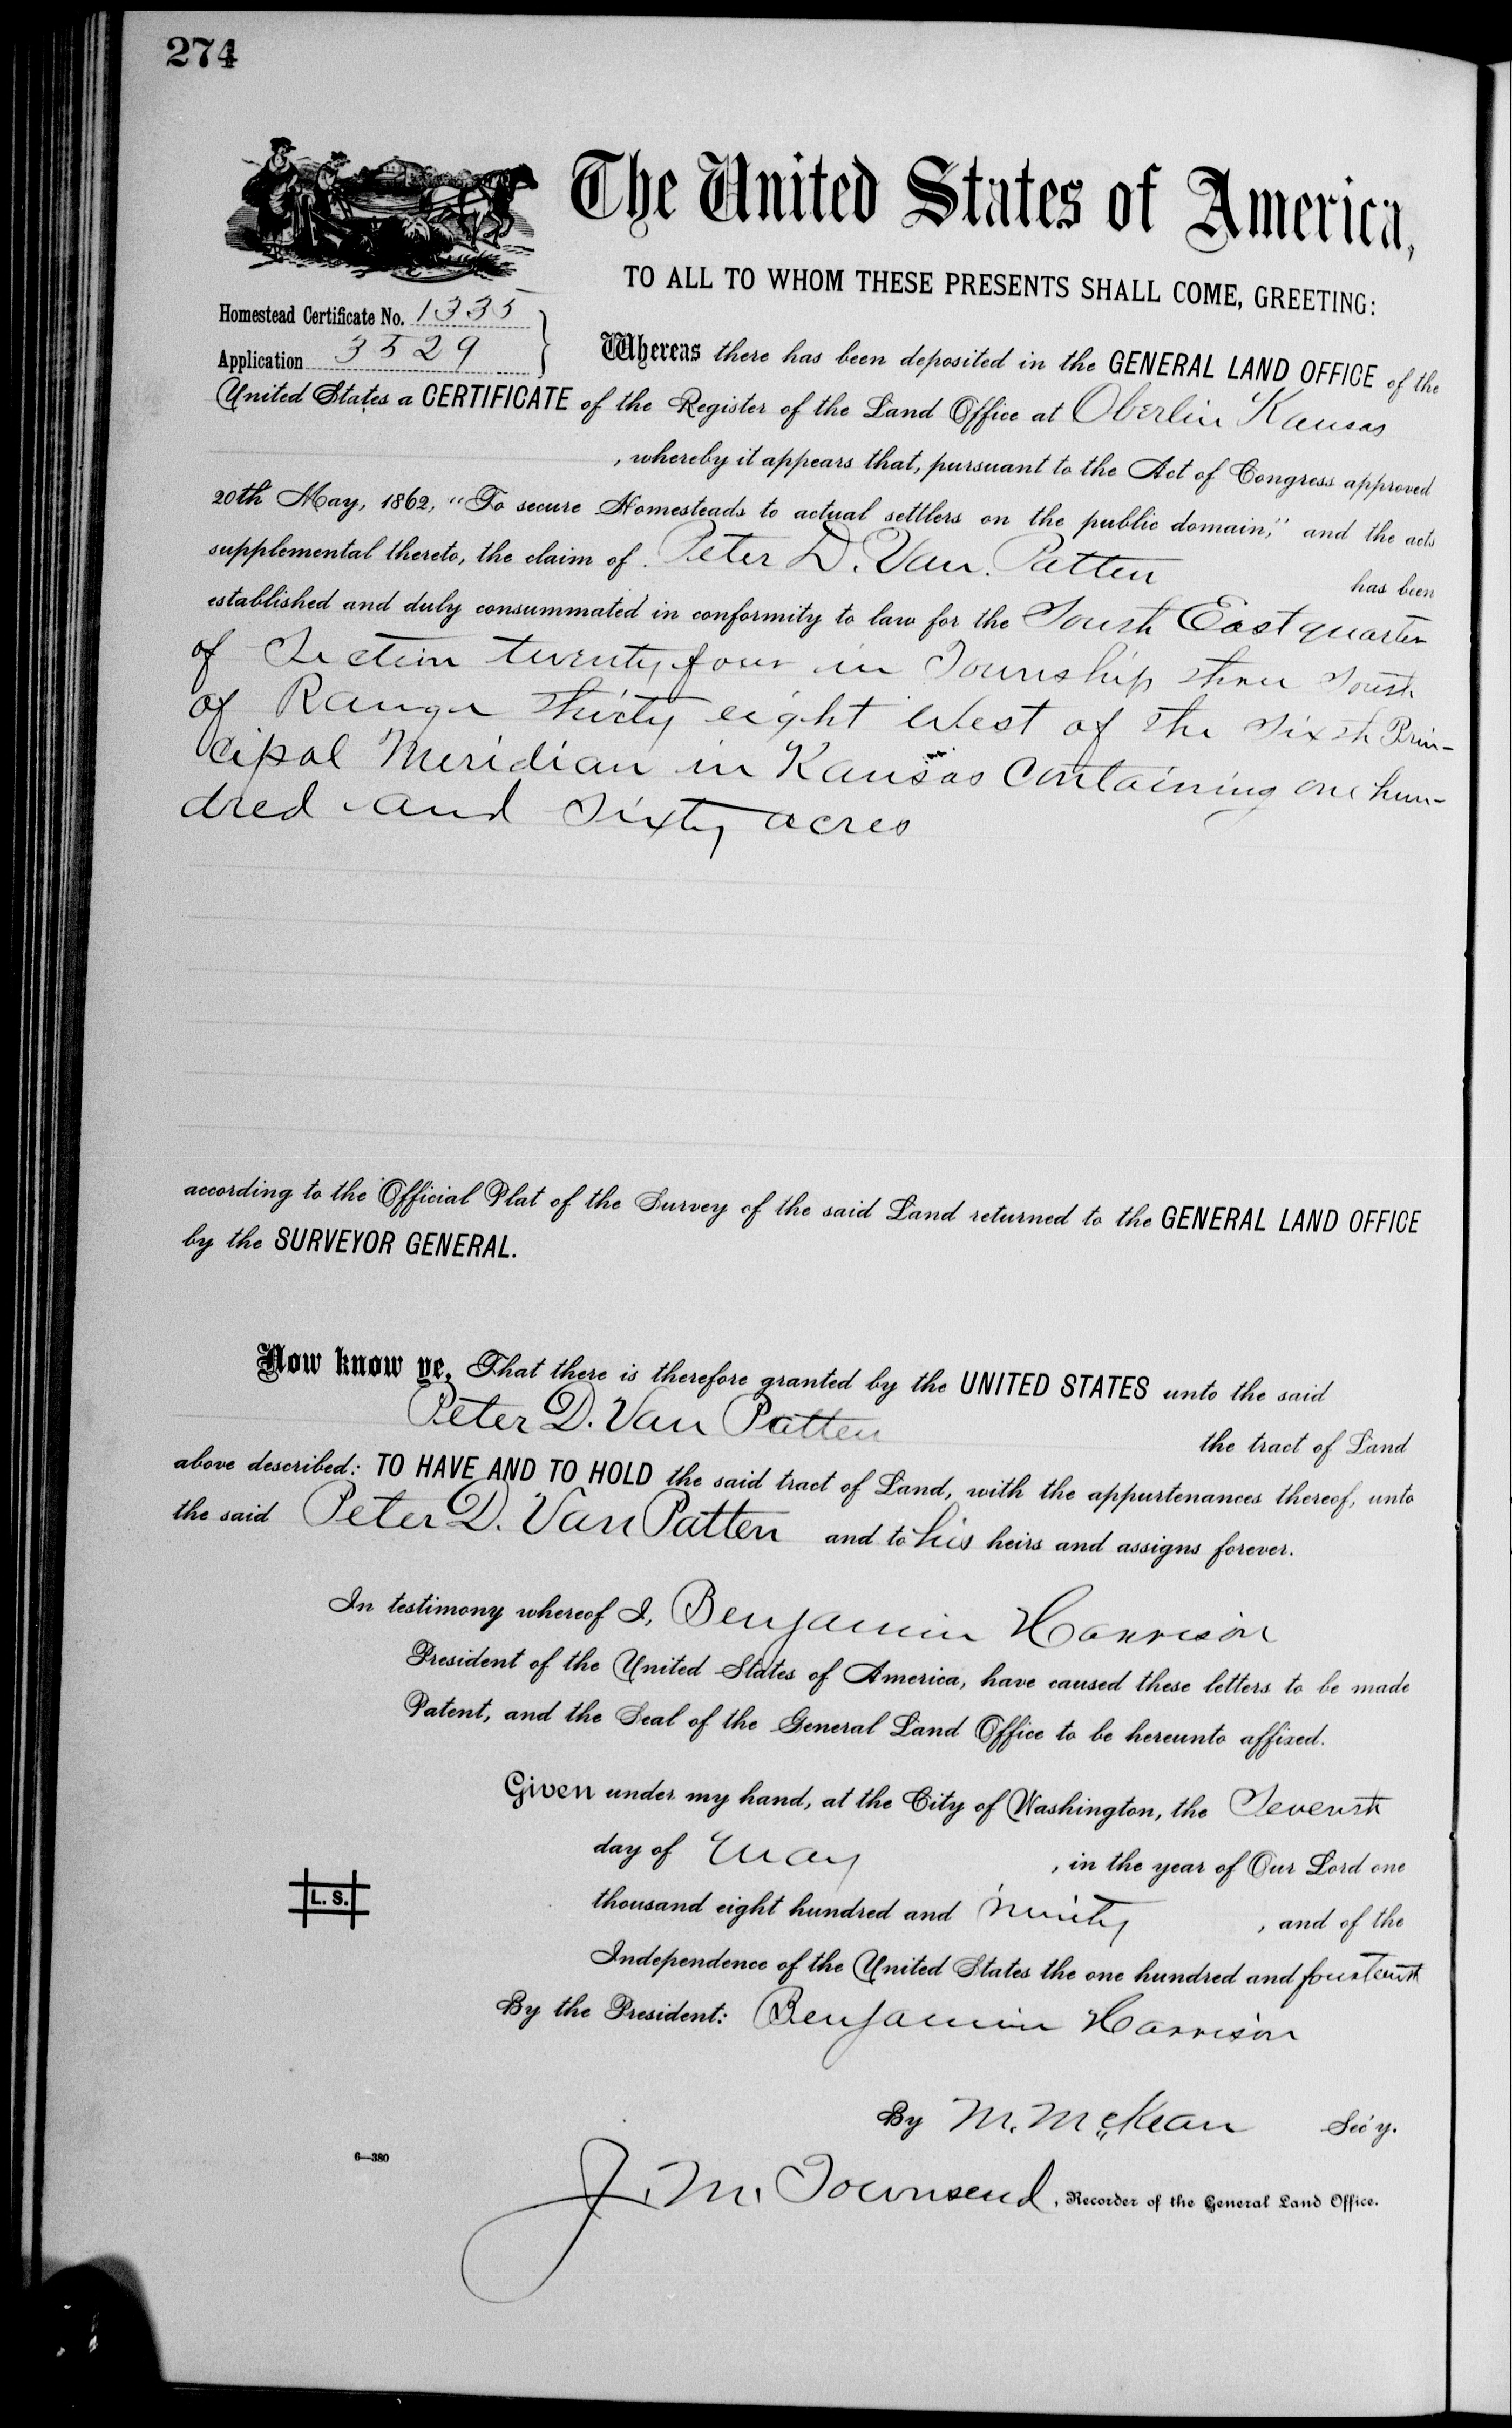 274
The United States of America,
TO ALL TO WHOM THESE PRESENTS SHALL COME, GREETING:
Homestead Certificate No. 1335
Application 3529
Whereas there has been deposited in the GENERAL LAND OFFICE of the
United States a CERTIFICATE of the Register of the Land Office at Oberlin Kansas
, whereby it appears that, pursuant to the Act of Congress approved
20th May, 1862, "To secure Homesteads to actual settlers on the public domain," and the acts
supplemental thereto, the claim of Peter D. Van. Patten has been
established and duly consummated in conformity to law for the South East quarter
of Section twenty four in Township three South
of Range thirty eight West of the Sixth Prin-
cipal Meridian in Kansas Containing one hun-
dred and Sixty acres
according to the Official Plat of the Survey of the said Land returned to the GENERAL LAND OFFICE
by the SURVEYOR GENERAL.
Now know ye, That there is therefore granted by the UNITED STATES unto the said
Peter D. Van Patten the tract of Land
above described: TO HAVE AND TO HOLD the said tract of Land, with the appurtenances thereof, unto
the said Peter D. Van Patten and to his heirs and assigns forever.
In testimony whereof I, Benjamin Harrison
President of the United States of America, have caused these letters to be made
Patent, and the Seal of the General Land Office to be hereunto affixed.
Given under my hand, at the City of Washington, the Seventh
day of May , in the year of Our Lord one
thousand eight hundred and ninety , and of the
Independence of the United States the one hundred and fourteenth
L. S.
By the President: Benjamin Harrison
By M. McKean Sec'y.
6—380
J. M. Townsend, Recorder of the General Land Office.